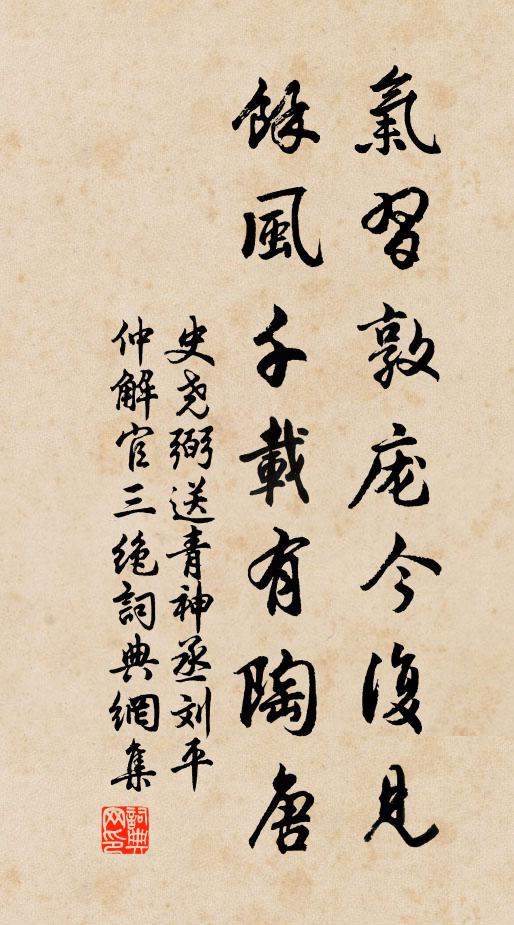 氣習敦庞今復見
餘風千載有陶唐
史尧弼送青神丞刘平
仲解官三绝詞典網集
詞典网印